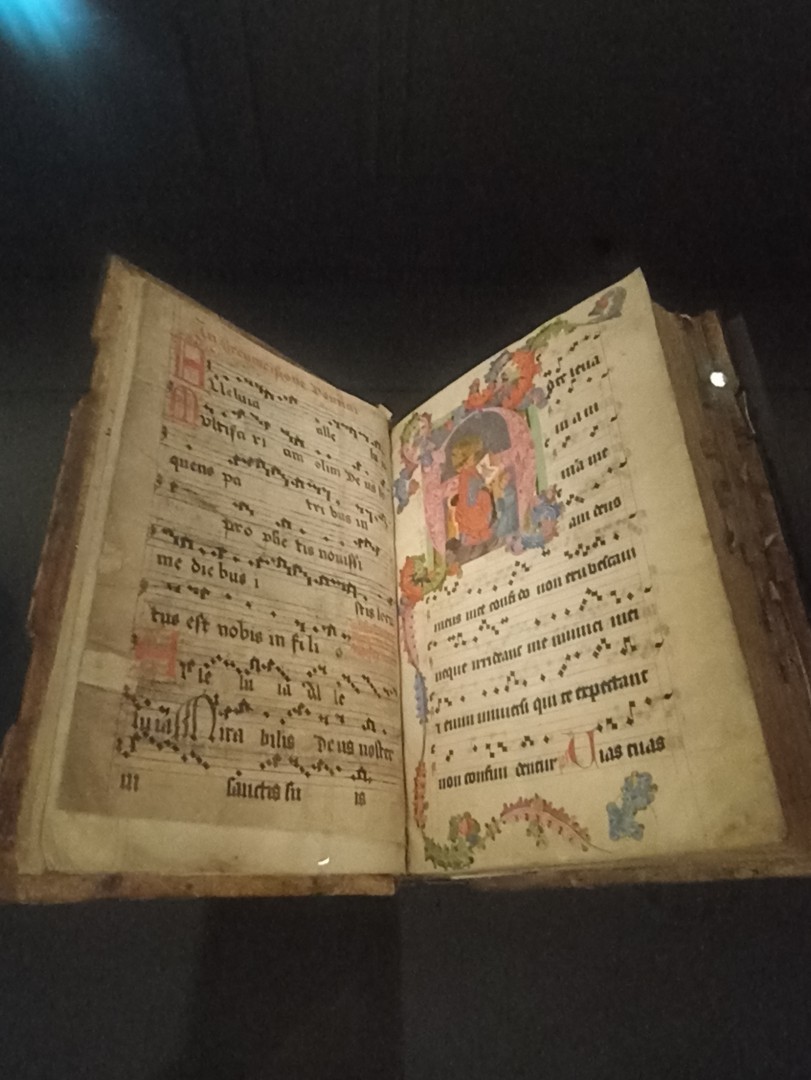 In Circumcisione Domini
Alleluia alle lu
Multifa ri am olim de us lo
quens pa tri bus in
pro phe tis novissi
me die bus i
stis locu
tus est nobis in fi li o
Al le lu ia Al le
luia Mira bilis Deus noster
in sanctis su is
Ad te leva
vi a ni m
am me
am deus
meus in te confi do non erubescam
neque irrideant me inimici mei
etenim universi qui te expectant
non confun dentur Uias tuas